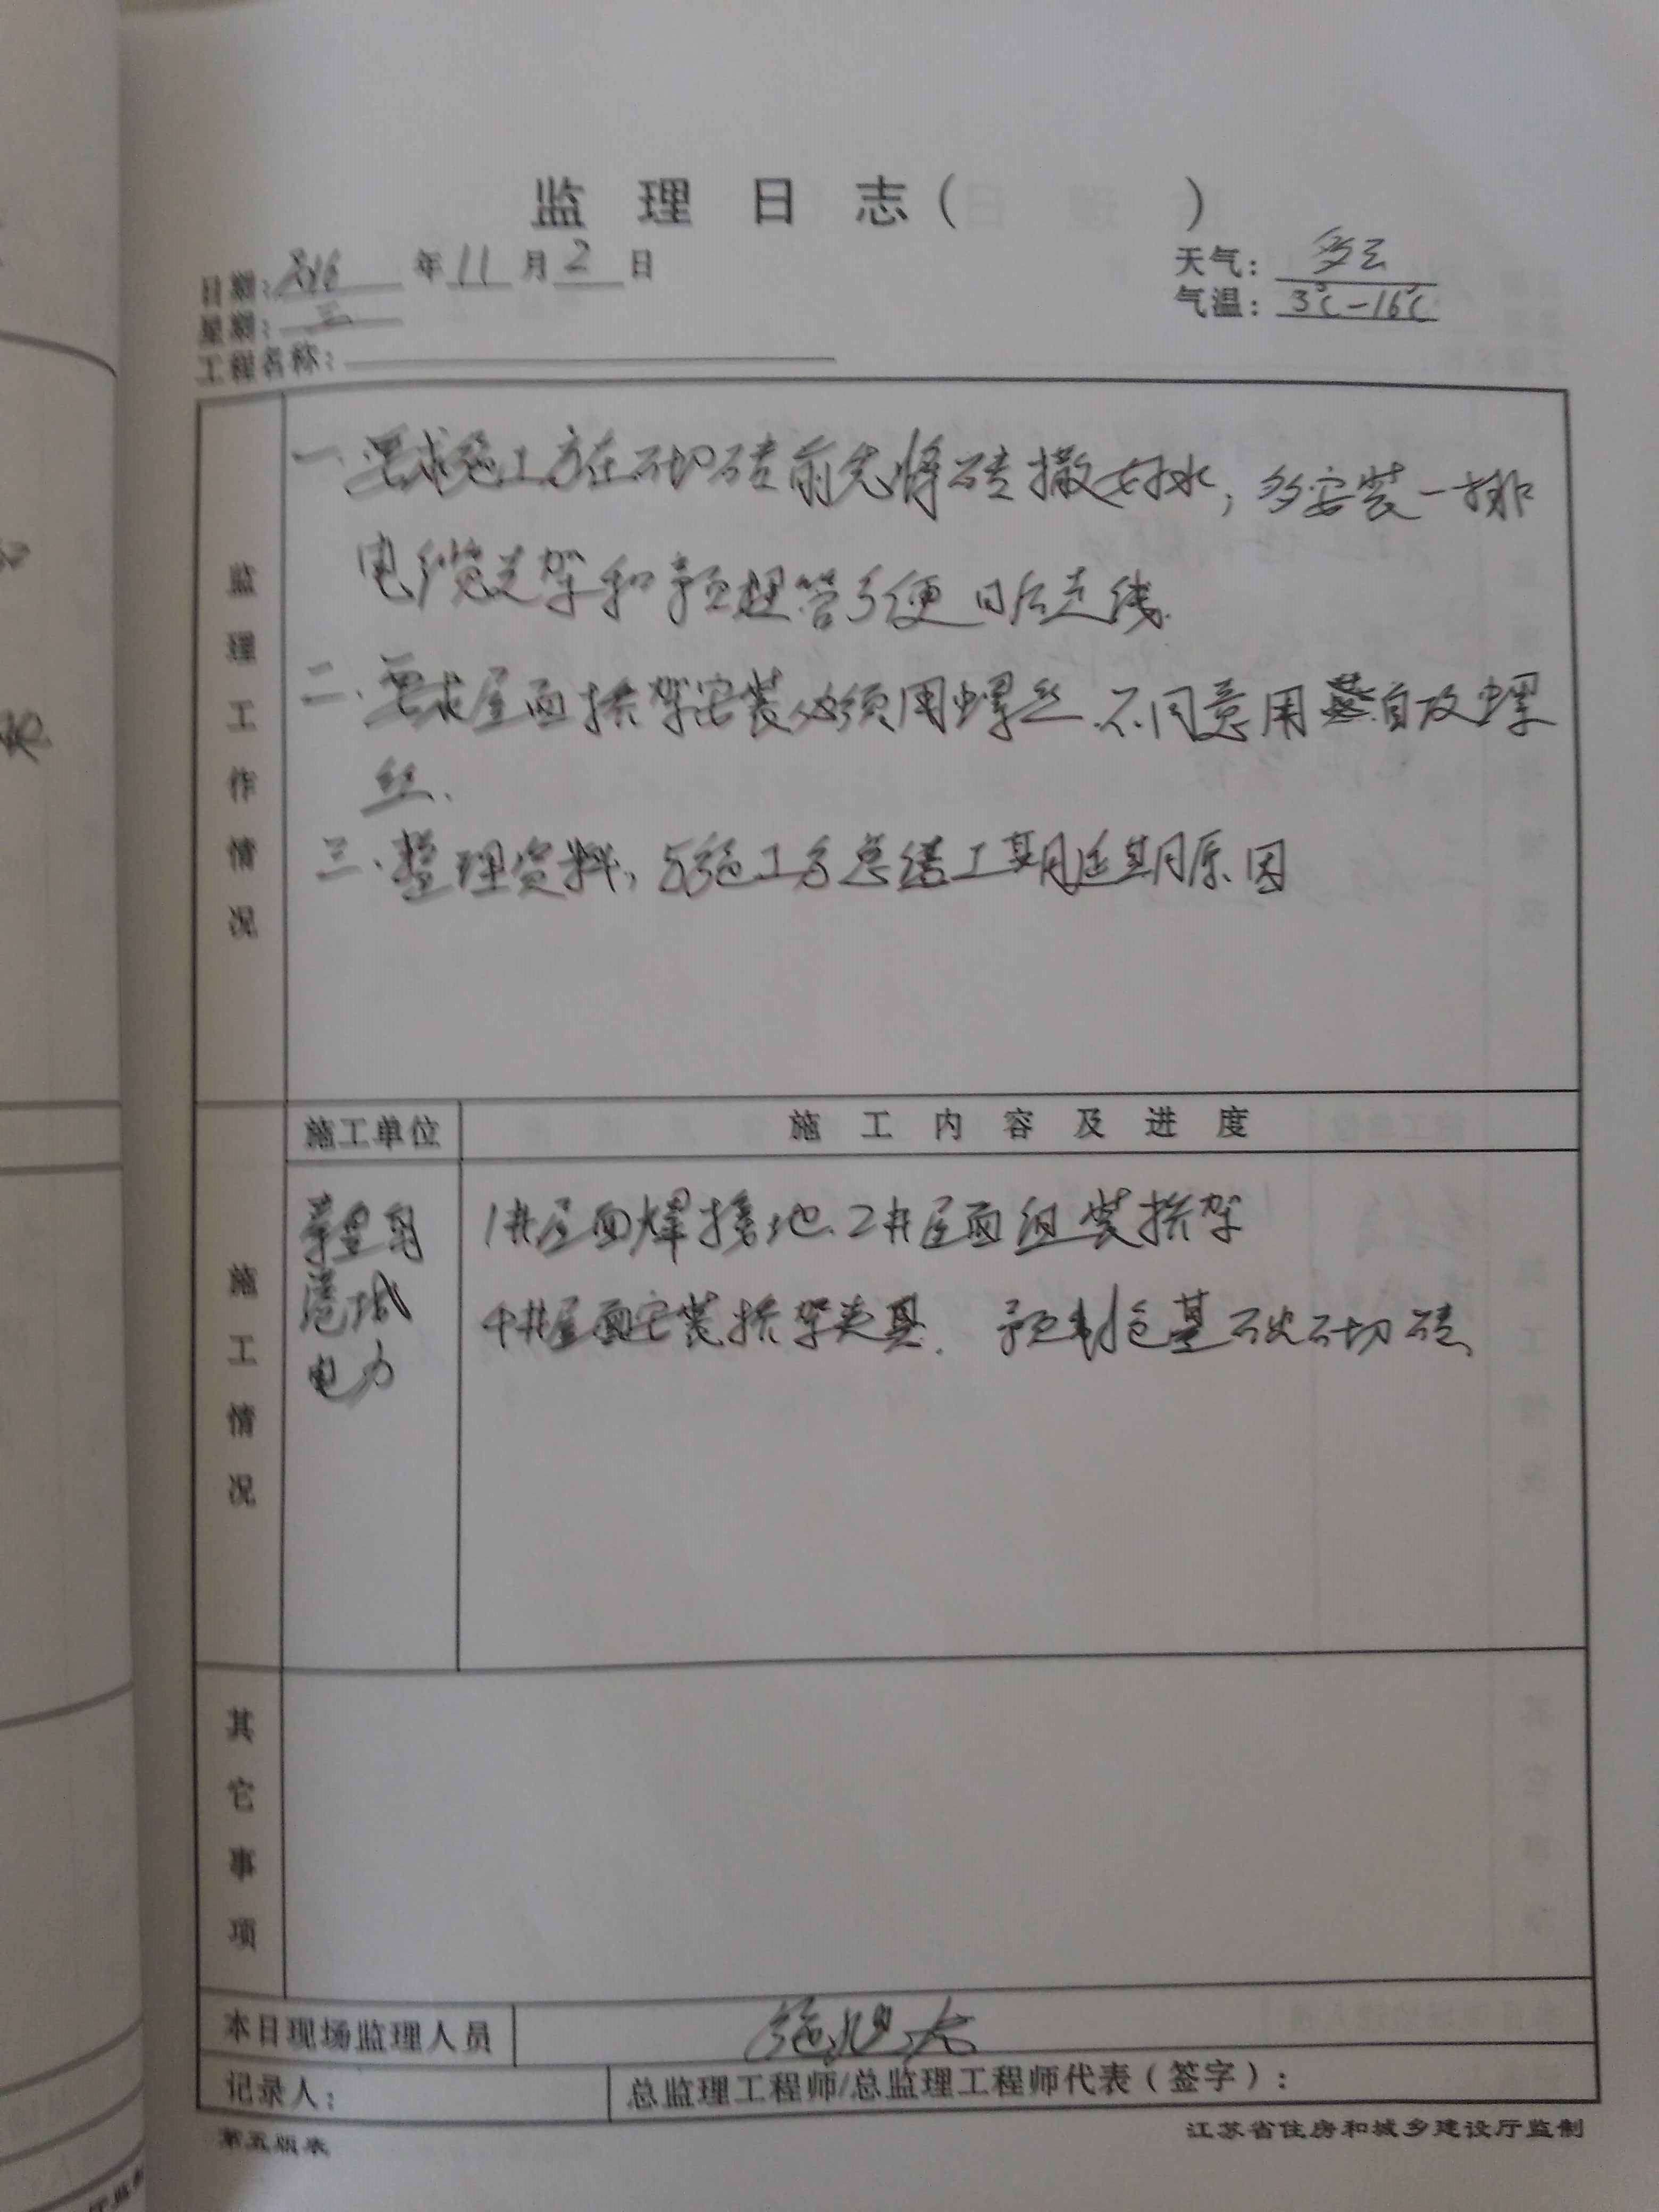 监理日志（ ）
日期：2016 年 11 月 2 日
天气：多云
星期：三
气温：3℃-16℃
工程名称：
监理工作情况
一、要求施工方在砌砖前先将砖撒好水，多安装一排
电缆支架和预埋管方便日后走线.
二、要求屋面桥架安装必须用螺丝.不同意用自攻螺
丝.
三、整理资料，与施工方总结工期延期原因
施工单位
施工内容及进度
施工情况
港城
电力
1#屋面焊接地.2#屋面组装桥架
4#屋面安装桥架夹具. 预制仓基础砌砖
其它事项
本日现场监理人员
记录人：
总监理工程师/总监理工程师代表（签字）：
第五版表
江苏省住房和城乡建设厅监制